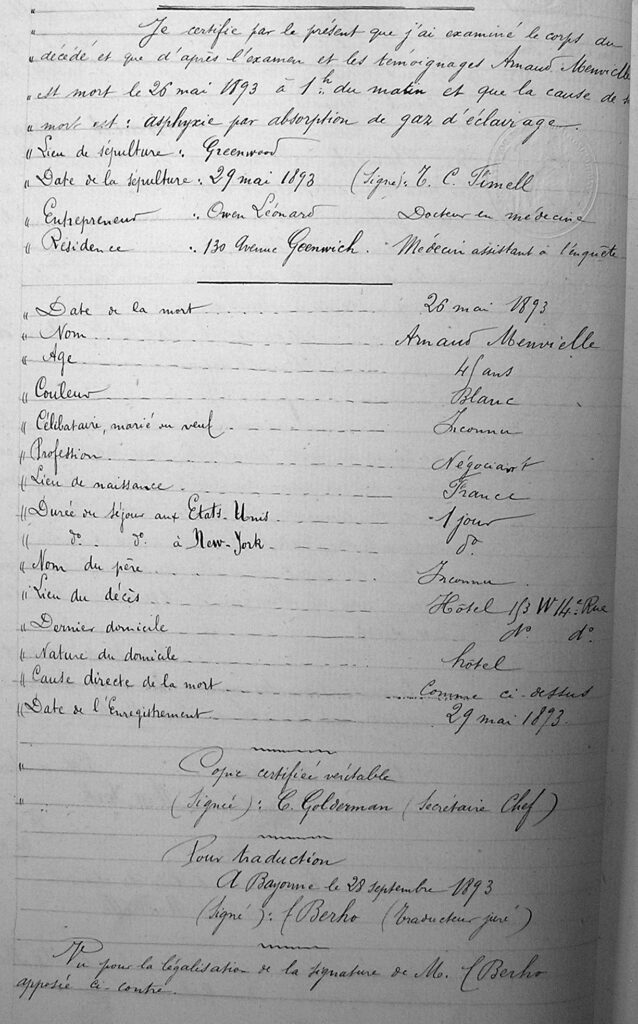 " Je certifie par le présent que j'ai examiné le corps du
" décédé et que d'après l'examen et les témoignages Arnaud Menvielle
" est mort le 26 mai 1893 à 1h du matin et que la cause de
" mort est : asphyxie par absorption de gaz d'éclairage.
" Lieu de sépulture : Greenwood
" Date de la sépulture : 29 mai 1893 (Signé): T. C. Finnell
" Entrepreneur : Owen Léonard Docteur en médecine
" Résidence : 130 Avenue Geenwich. Médecin assistant à l'enquête
" Date de la mort 26 mai 1893
" Nom Arnaud Menvielle
" Age 45 ans
" Couleur Blanc
" Célibataire, marié ou veuf Inconnu
" Profession Négociant
" Lieu de naissance France
" Durée du séjour aux Etats-Unis 1 jour
" do. do. à New-York do
" Nom du père Inconnu
" Lieu du décès Hôtel 153 W 14e Rue
" Dernier domicile do. do.
" Nature du domicile hôtel
" Cause directe de la mort Comme ci-dessus
" Date de l'Enregistrement 29 mai 1893.
" Copie certifiée véritable
" (Signé): C. Golderman (Secrétaire Chef)
Pour traduction
A Bayonne le 28 septembre 1893
(Signé): Berho (Traducteur juré)
Vu pour la légalisation de la signature de M. Berho
apposée ci-contre.